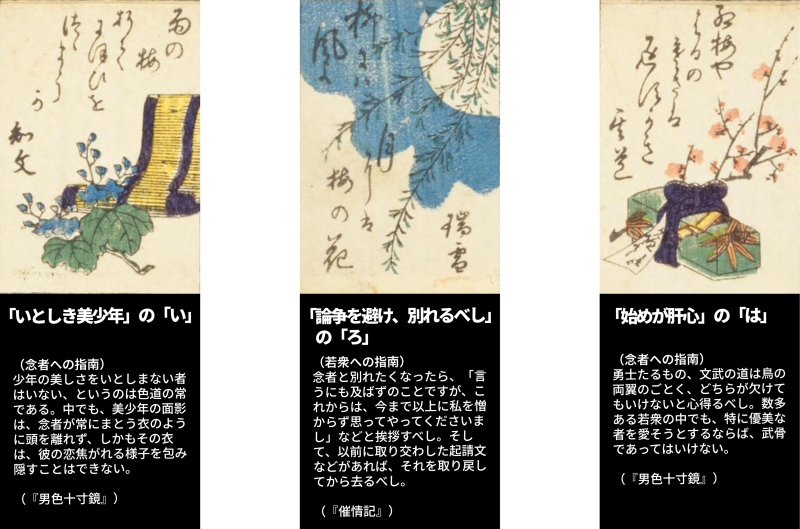 「いとしき美少年」の「い」
（念者への指南）
少年の美しさをいとしまない者
はいない、というのは色道の常
である。中でも、美少年の面影
は、念者が常にまとう衣のよう
に頭を離れず、しかもその衣
は、彼の恋焦がれる様子を包み
隠すことはできない。
（『男色十寸鏡』）
「論争を避け、別れるべし」
の「ろ」
（若衆への指南）
念者と別れたくなったら、「言
うにも及ばずのことですが、こ
れからは、今まで以上に私を憎
からず思ってやってくださいま
し」などと挨拶すべし。そし
て、以前に取り交わした起請文
などがあれば、それを取り戻し
てから去るべし。
（『催情記』）
「始めが肝心」の「は」
（念者への指南）
勇士たるもの、文武の道は鳥の
両翼のごとく、どちらが欠けて
もいけないと心得るべし。数多
ある若衆の中でも、特に優美な
者を愛そうとするならば、武骨
であってはいけない。
（『男色十寸鏡』）